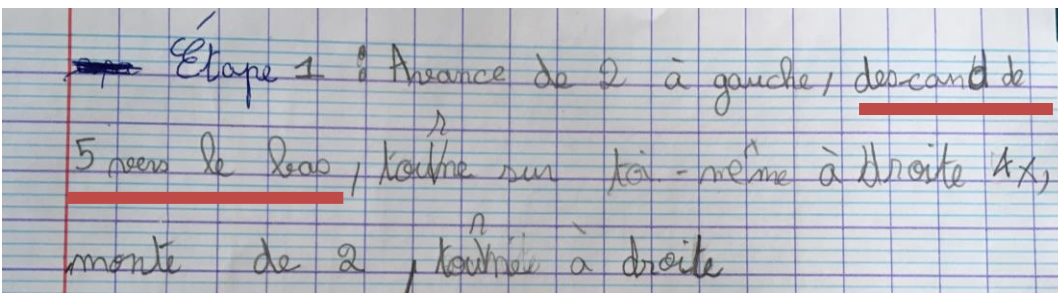 Étape 1 : Avance de 2 à gauche, descand de
5 vers le bas, tourne sur toi-même à droite 4x,
monte de 2, tourne à droite